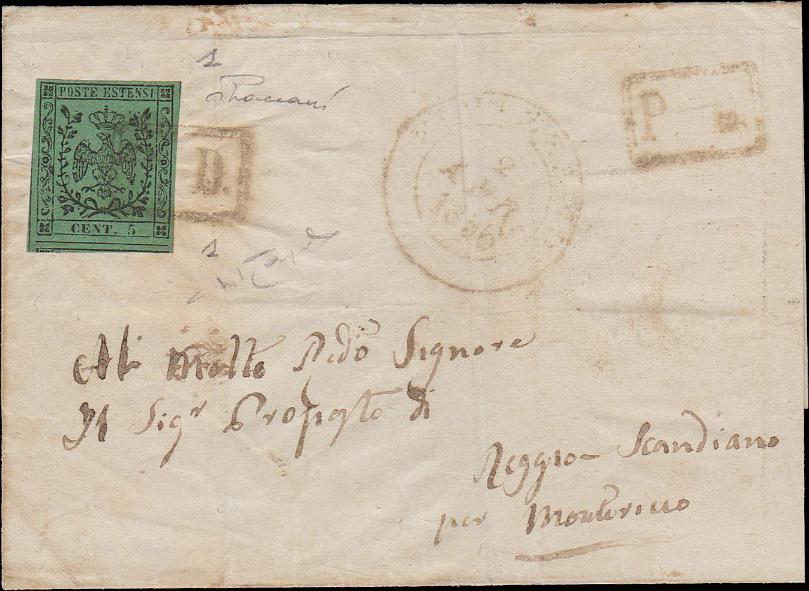 POSTE ESTENSI
CENT. 5
D.
P D.
2
APR
1856
Al Molto Rdo Signore
Il Sigr Proposto di
Reggio Scandiano
per Montericco